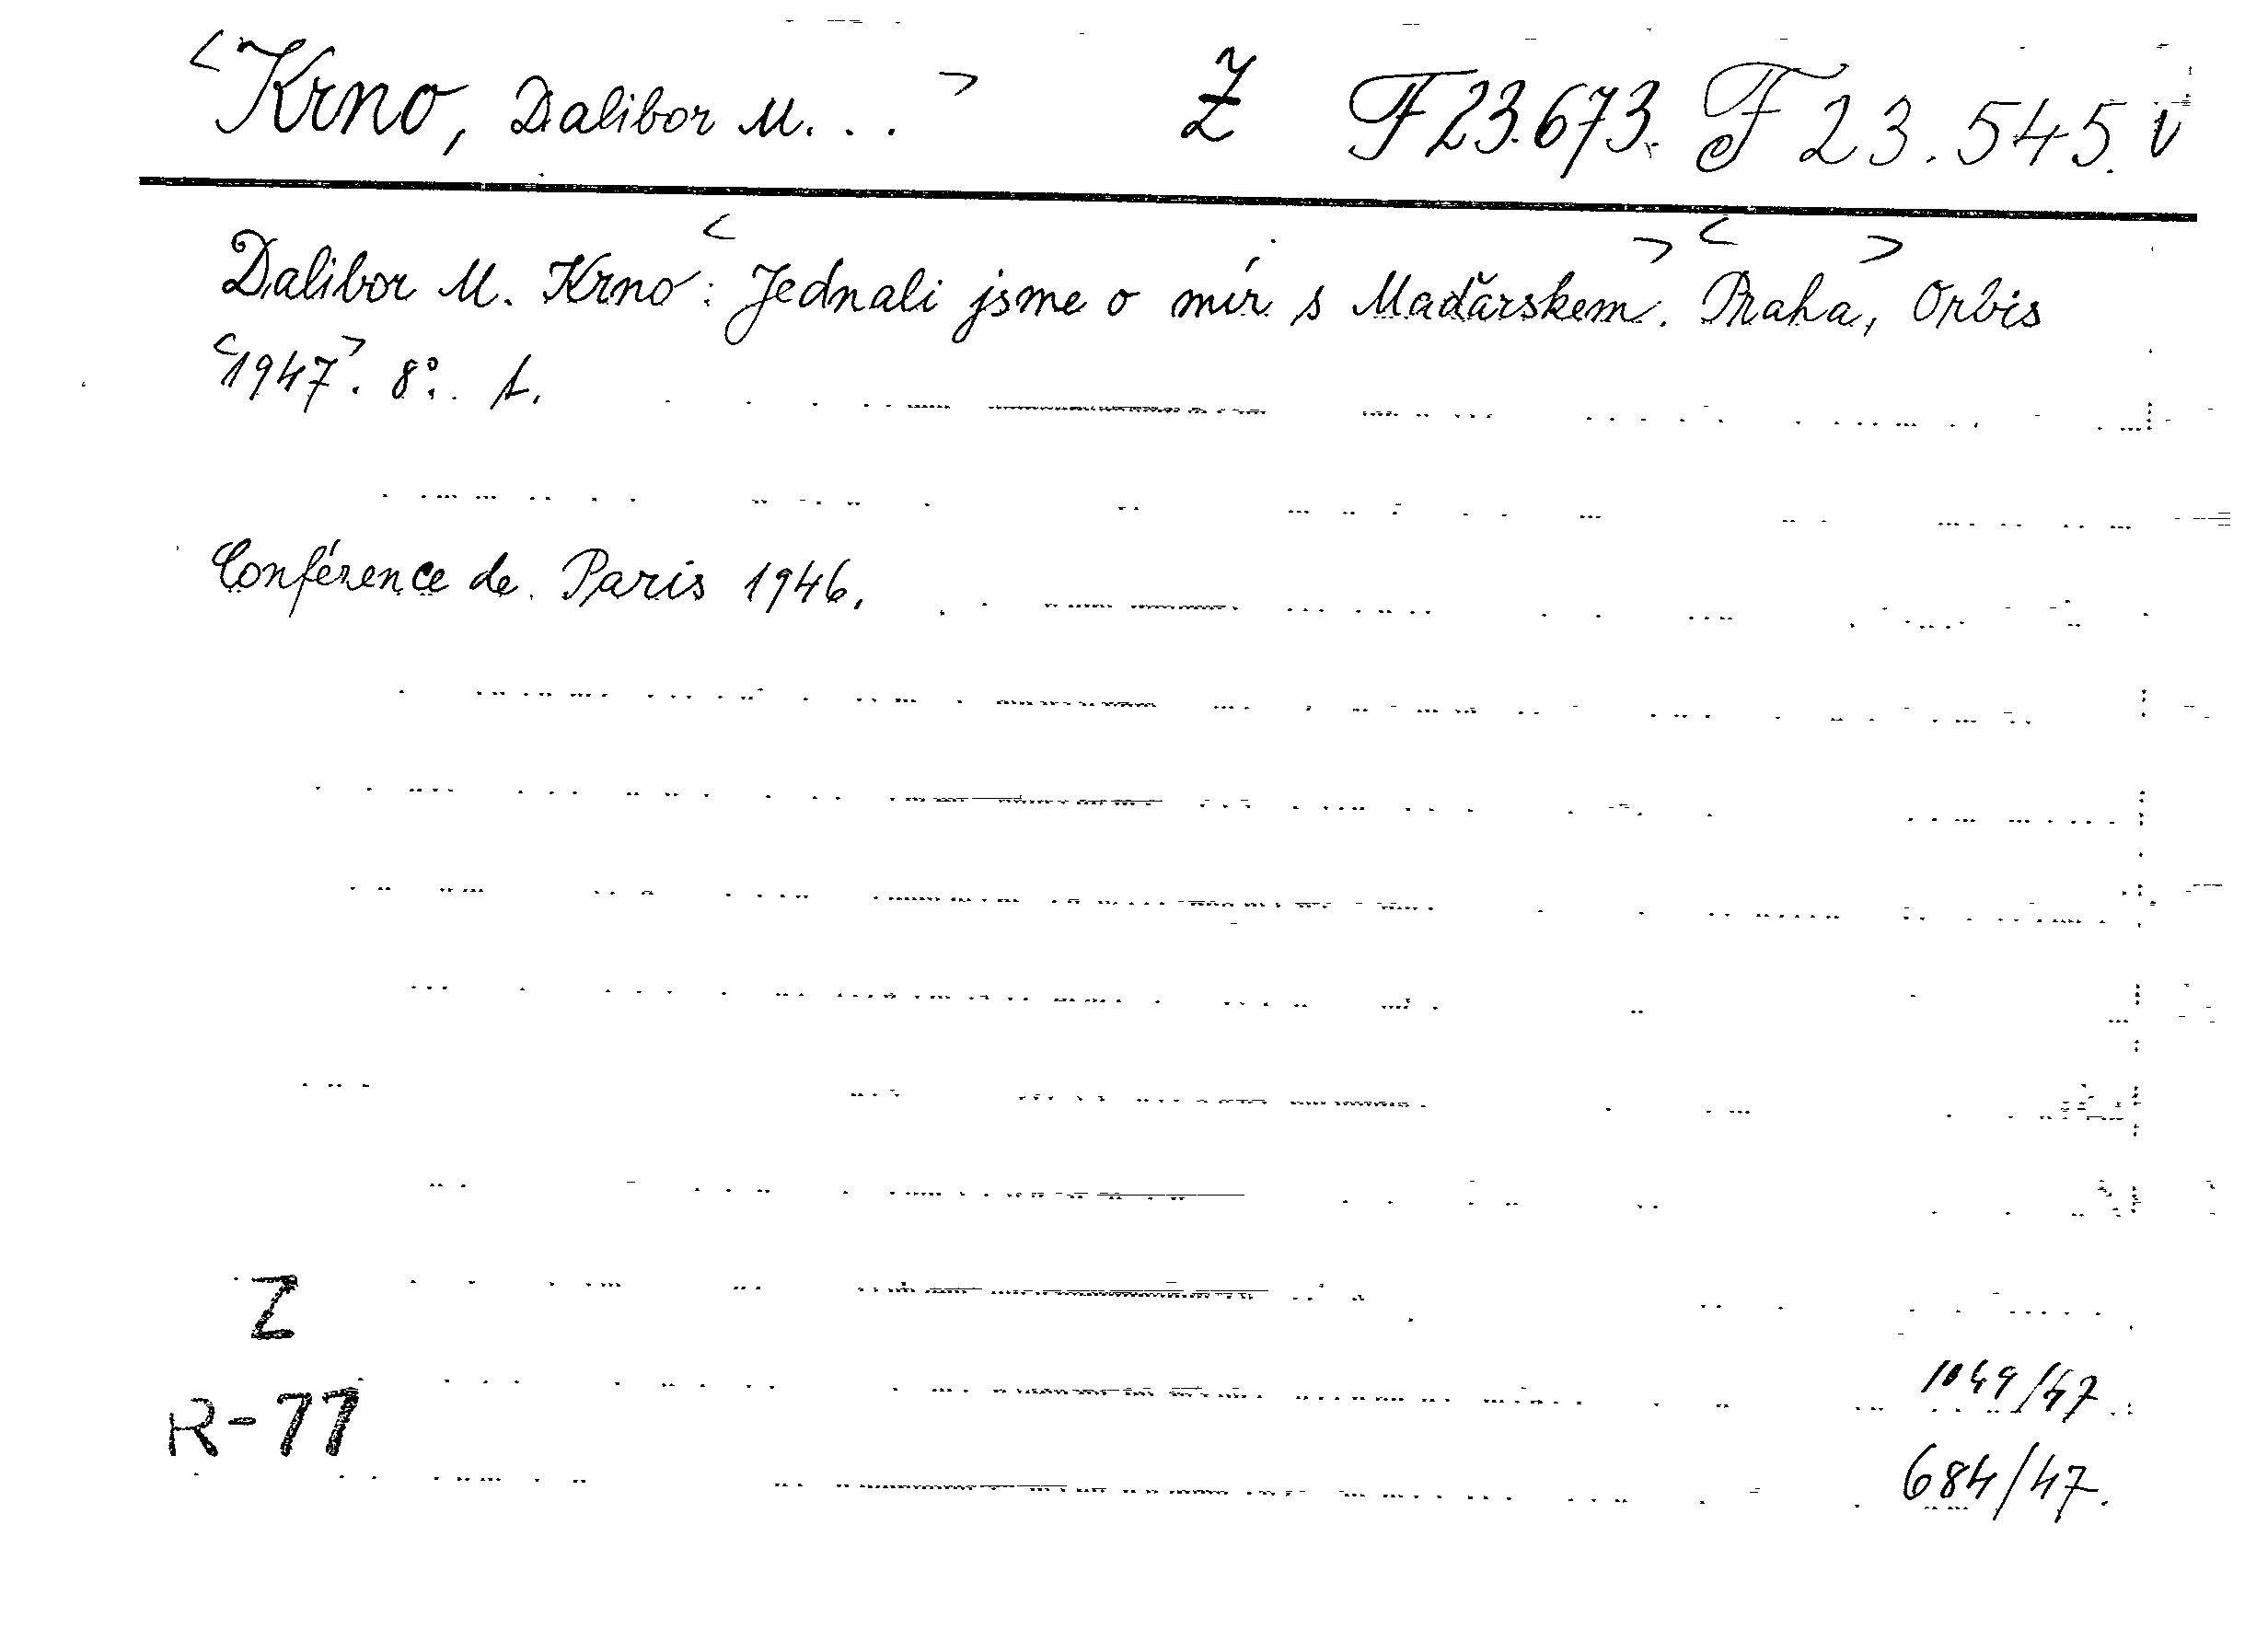 <Krno, Dalibor M...> Z F 23.673. F 23.545. V
Dalibor M. Krno: <Jednali jsme o mír s Maďarskem>. <Praha>, Orbis
<1947>. 8°. t.
Conférence de Paris 1946.
Z
R-77
1049/47
684/47.